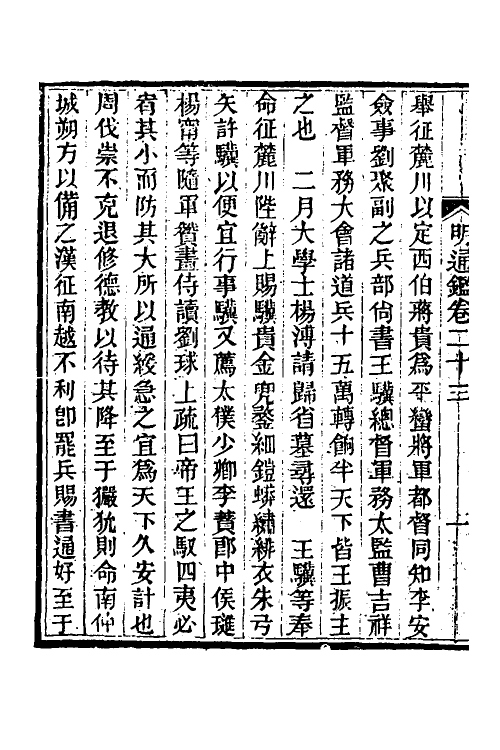 明通鑑卷二十三
舉征麓川以定西伯蔣貴爲平蠻將軍都督同知李安
僉事劉聚副之兵部尙書王驥總督軍務太監曹吉祥
監督軍務大會諸道兵十五萬轉餉半天下皆王振主
之也　二月大學士楊溥請歸省墓尋還　王驥等奉
命征麓川陛辭上賜驥貴金兜鍪細鎧蟒繡緋衣朱弓
矢許驥以便宜行事驥又薦太僕少卿李蕡郞中侯璡
楊甯等隨軍贊畫侍讀劉球上疏曰帝王之馭四夷必
宥其小而防其大所以適緩急之宜爲天下久安計也
周伐崇不克退修德敎以待其降至于玁狁則命南仲
城朔方以備之漢征南越不利卽罷兵賜書通好至于